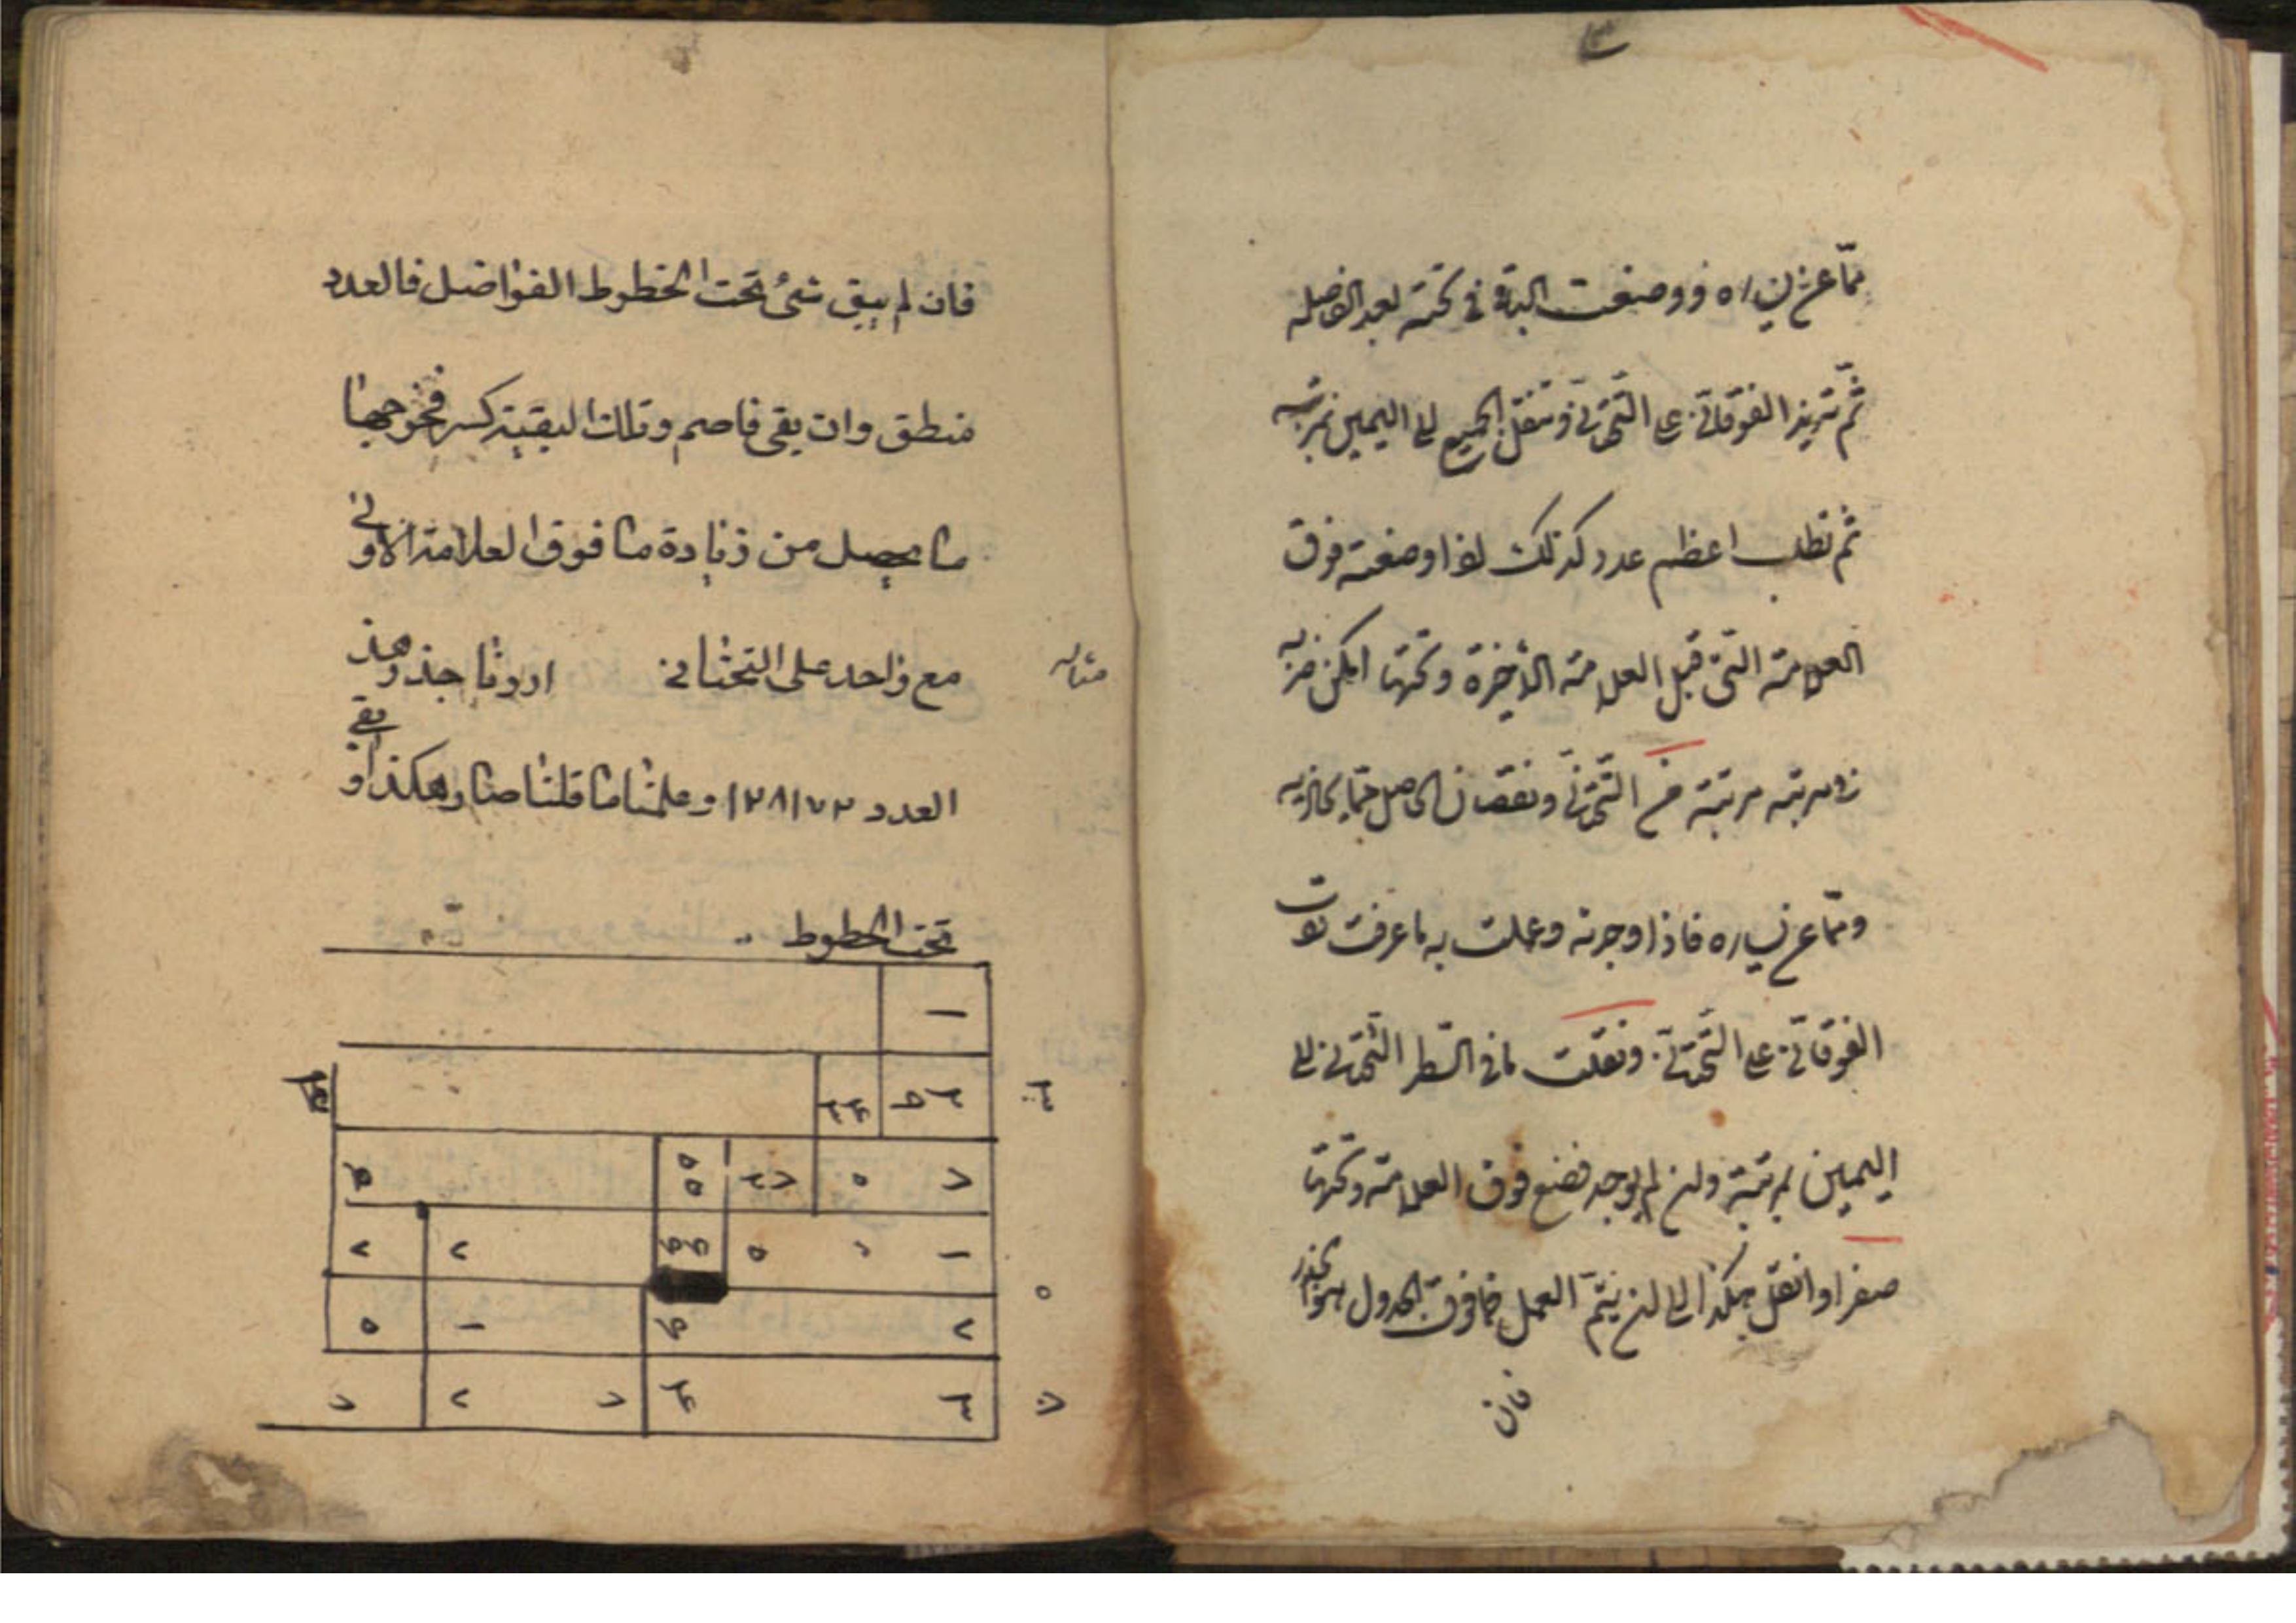 مما عن يساره ووضعت الباقي تحته بعد الفاصله
ثم تزيد الفوقاني على التحتاني وتنقل الجميع الى اليمين بمرتبه
ثم تطلب اعظم عدد كذلك اذا وضعته فوق
العلامة التي قبل العلامة الأخيرة وتحتها امكن ضربه
في مرتبه مرتبة من التحتاني ونقصان الحاصل مما يحاذيه
ومما عن يساره فاذا وجدته وعملت به ما عرفت زدت
الفوقاني على التحتاني ونقلت ما في السطر التحتاني الى
اليمين بمرتبة وان لم يوجد فضع فوق العلامة وتحتها
صفرا وانقل هكذا الى ان يتم العمل فما فوق الجدول هو الجذر
فان
فان لم يبق شئ تحت الخطوط الفواضل فالعدد
منطق وان بقى فاصم وتلك البقية كسر فخرجها
ما يحصل من زيادة ما فوق العلامة الاولى
مع واحد على التحتاني اردنا جذر هذ
مثاله
العدد ١٢٨١٧٢ وعملنا ما قلنا صار هكذا و بقى
تحت الخطوط
١
٣
٧ ٥
١ ٢ ٢
٥ ٢ ١ ٥
٧ ٣ ٧ ٢ ٧